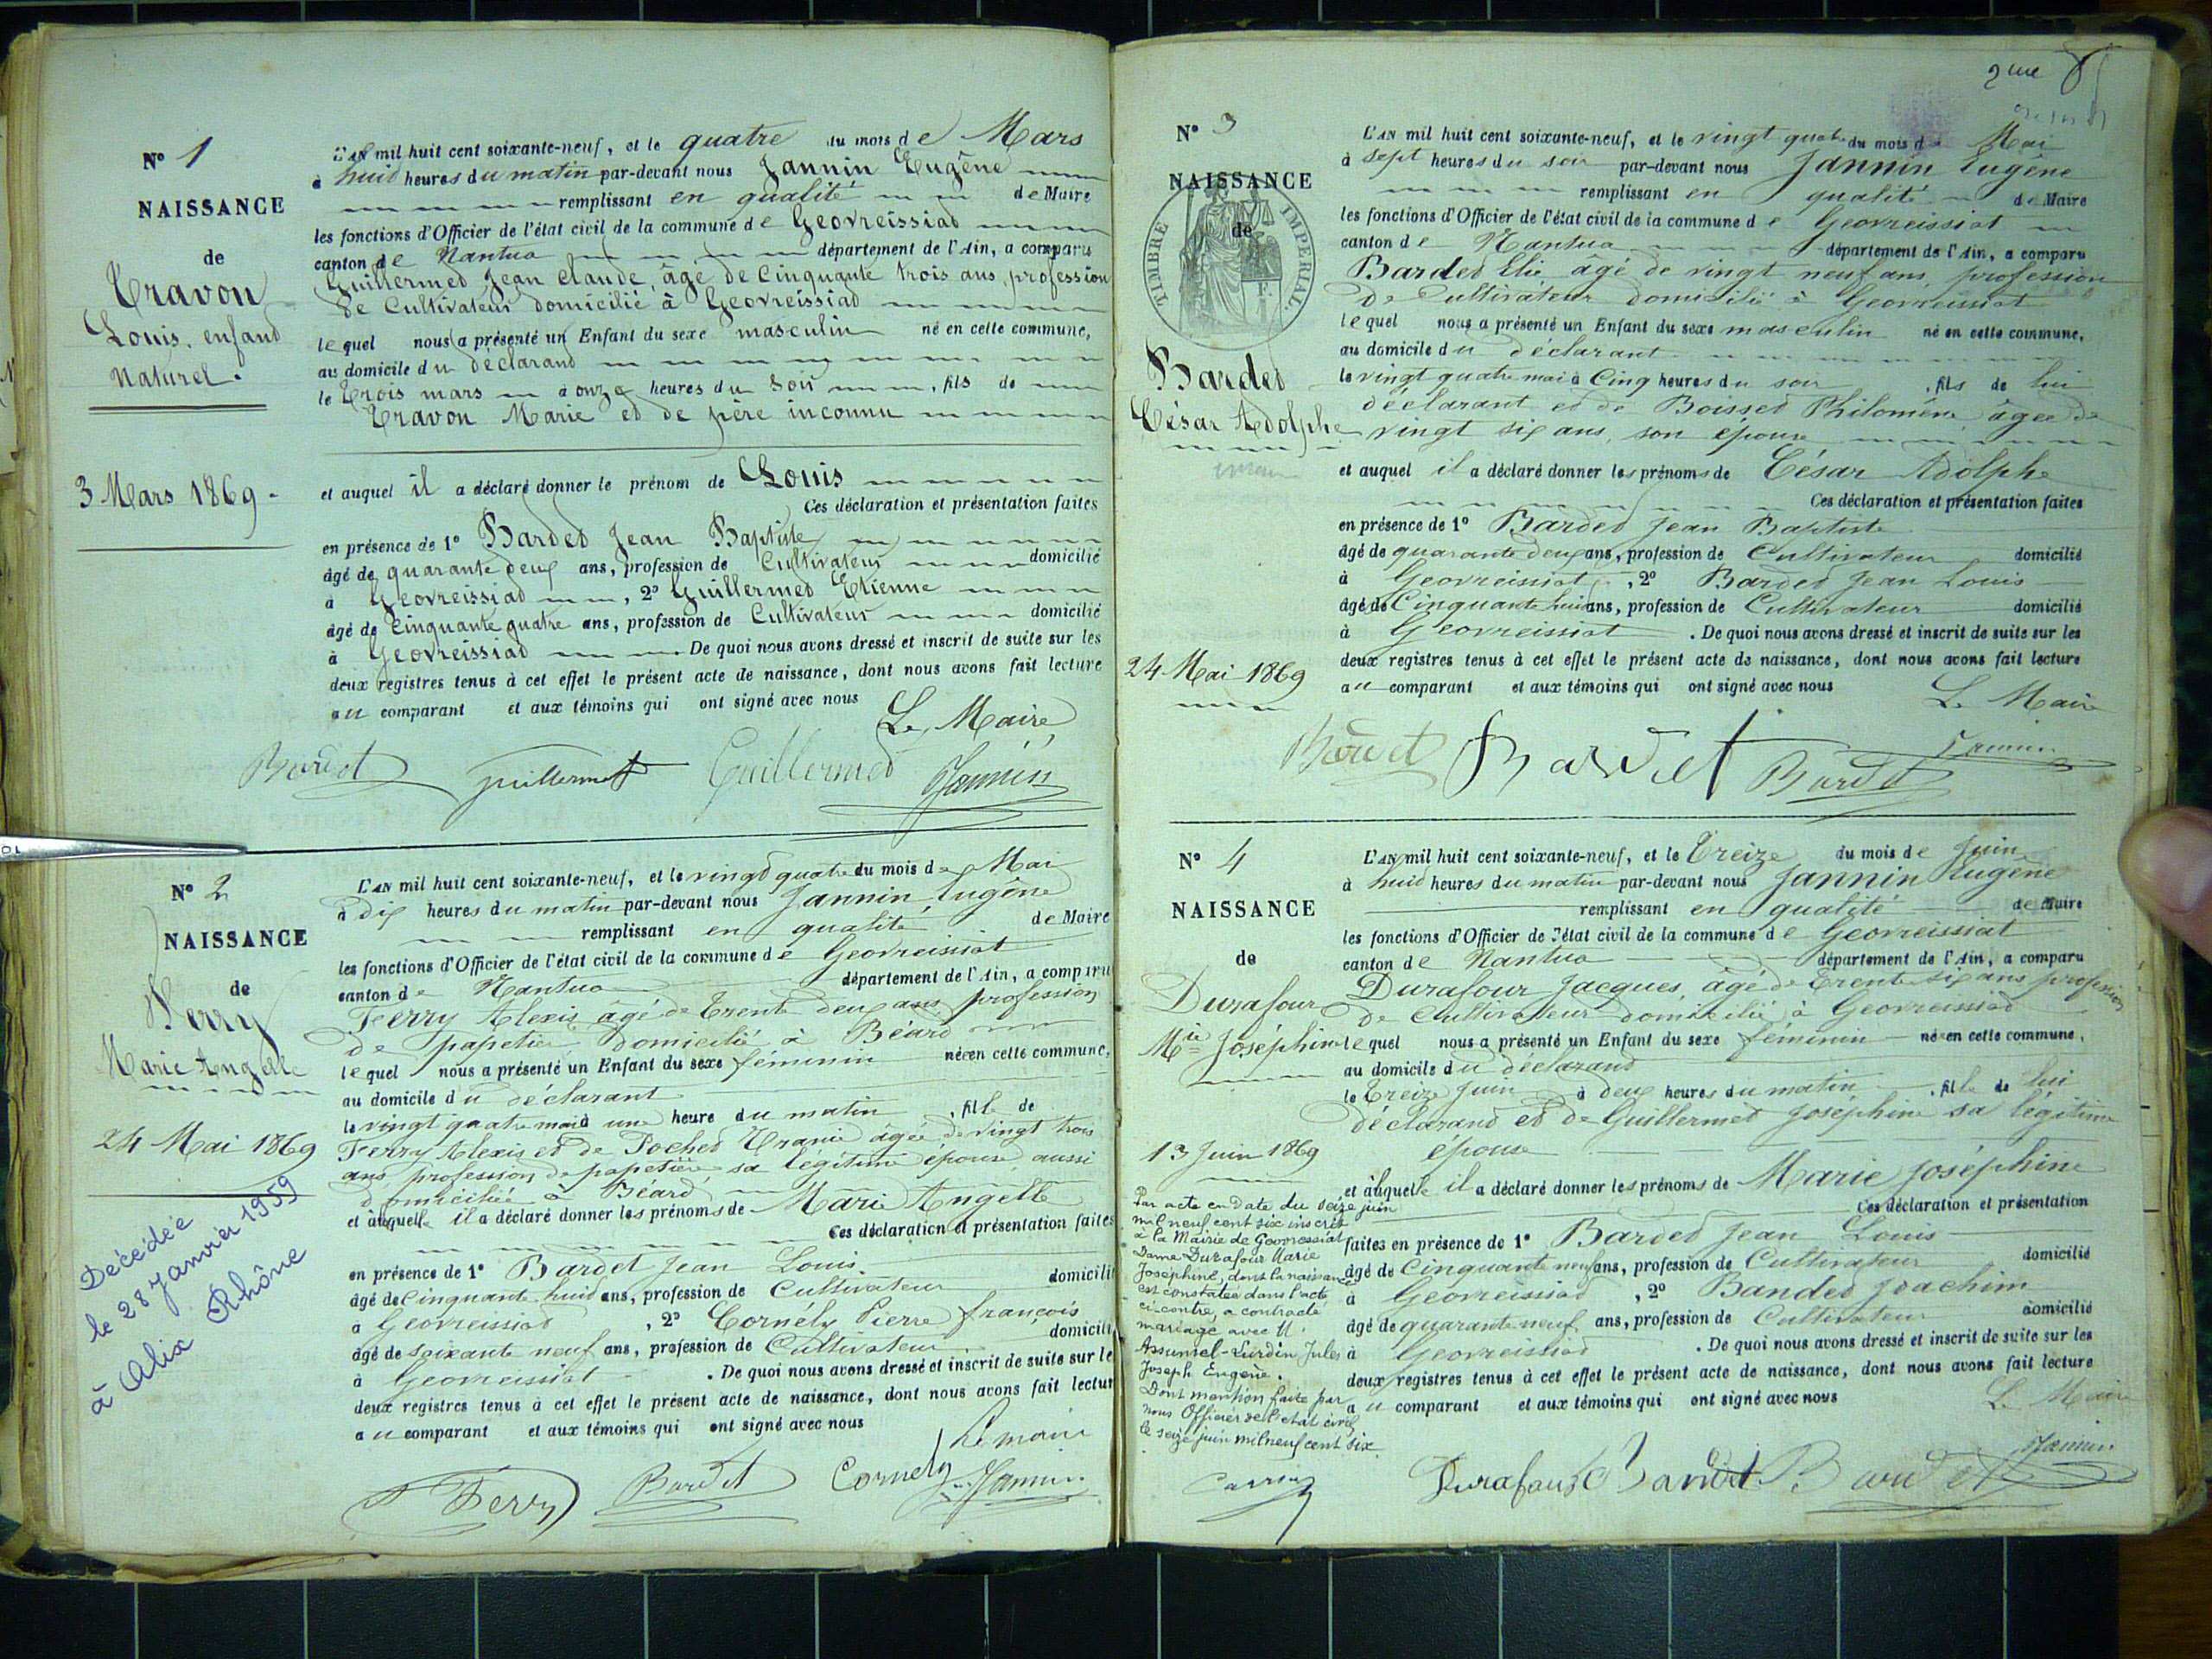 N° 1
NAISSANCE
de
Travon
Louis, enfand
naturel.
3 Mars 1869.
L'AN mil huit cent soixante-neuf, et le quatre du mois de Mars
à huid heures du matin par-devant nous Jannin Eugène
remplissant en qualité de Maire
les fonctions d'Officier de l'état civil de la commune de Geovreissiad
canton de Nantua département de l'Ain, a comparu
Guillermed Jean Claude, âgé de Cinquante trois ans, profession
de Cultivateur domicilié à Geovreissiad
lequel nous a présenté un Enfant du sexe masculin né en cette commune,
au domicile du déclarand
le trois mars à onze heures du Soir, fils de
Travon Marie ed de père inconnu
et auquel il a déclaré donner le prénom de Louis
Ces déclaration et présentation faites
en présence de 1° Barded Jean Baptiste
âgé de quarante deux ans, profession de Cultivateur domicilié
à Geovreissiad, 2° Guillermed Etienne
âgé de Cinquante quatre ans, profession de Cultivateur domicilié
à Geovreissiad De quoi nous avons dressé et inscrit de suite sur les
deux registres tenus à cet effet le présent acte de naissance, dont nous avons fait lecture
au comparant et aux témoins qui ont signé avec nous
Le Maire
Bardet Guillermet Guillermed Jannin
N° 2
NAISSANCE
de
Ferry
Marie Angele
24 Mai 1869
Décédée
le 28 Janvier 1959
à Alix Rhône
L'AN mil huit cent soixante-neuf, et le vingd quatre du mois de Mai
à dix heures du matin par-devant nous Jannin Eugène
remplissant en qualité de Maire
les fonctions d'Officier de l'état civil de la commune de Geovreissiat
canton de Nantua département de l'Ain, a comparu
Ferry Alexis âgé de trente deux ans profession
de papetier domicilié à Béard
lequel nous a présenté un Enfant du sexe féminin née en cette commune,
au domicile du déclarant
le vingt quatre mai à une heure du matin, fille de
Ferry Alexis et de Poched Uranie âgée de vingt trois
ans profession de papetière sa légitime épouse, aussi
domiciliée à Béard
et à laquelle il a déclaré donner les prénoms de Marie Angelle
Ces déclaration et présentation faites
en présence de 1° Bardet Jean Louis.
âgé de Cinquante huid ans, profession de Cultivateur domicilié
à Geovreissiad, 2° Cornély Pierre françois
âgé de soixante neuf ans, profession de Cultivateur domicilié
à Geovreissiat. De quoi nous avons dressé et inscrit de suite sur le
deux registres tenus à cet effet le présent acte de naissance, dont nous avons fait lectur
au comparant et aux témoins qui ont signé avec nous
Le maire
Ferry Bardet Cornely Jannin
2me
N° 3
NAISSANCE
de
TIMBRE IMPERIAL
Barded
César Adolphe
24 Mai 1869
L'AN mil huit cent soixante-neuf, et le vingt quatre du mois de Mai
à sept heures du soir par-devant nous Jannin Eugène
remplissant en qualité de Maire
les fonctions d'Officier de l'état civil de la commune de Geovreissiat
canton de Nantua département de l'Ain, a comparu
Barded Elie âgé de vingt neuf ans, profession
de Cultivateur domicilié à Geovreissiat
lequel nous a présenté un Enfant du sexe masculin né en cette commune,
au domicile du déclarant
le vingt quatre mai à Cinq heures du soir, fils de lui
déclarant et de Boissed Philomène, âgée de
vingt six ans, son épouse
et auquel il a déclaré donner les prénoms de César Adolphe
Ces déclaration et présentation faites
en présence de 1° Barded Jean Baptiste
âgé de quarante deux ans, profession de Cultivateur domicilié
à Geovreissiat, 2° Barded Jean Louis
âgé de Cinquante huid ans, profession de Cultivateur domicilié
à Geovreissiat. De quoi nous avons dressé et inscrit de suite sur les
deux registres tenus à cet effet le présent acte de naissance, dont nous avons fait lecture
au comparant et aux témoins qui ont signé avec nous
Le Maire
Bardet Bardet Bardet Jannin
N° 4
NAISSANCE
de
Durafour
Mie Joséphine
13 Juin 1869
Par acte en date du seize juin
mil neuf cent six inscrit
à la Mairie de Geovressiat
Dame Durafour Marie
Joséphine, dont la naissance
est constatée dans l'acte
ci-contre, a contracté
mariage avec M.
Assumel-Lurdin Jules
Joseph Eugène.
Dont mention faite par
nous Officier de l'état civil
le seize juin mil neuf cent six
L'AN mil huit cent soixante-neuf, et le treize du mois de Juin
à huid heures du matin par-devant nous Jannin Eugène
remplissant en qualité de Maire
les fonctions d'Officier de l'état civil de la commune de Geovreissiat
canton de Nantua département de l'Ain, a comparu
Durafour Jacques, âgé de trente six ans profession
de Cultivateur domicilié à Geovreissiad
lequel nous a présenté un Enfant du sexe féminin née en cette commune,
au domicile du déclarand
le treize Juin à deux heures du matin, fille de lui
déclarand et de Guillermet Joséphine sa légitime
épouse
et à laquelle il a déclaré donner les prénoms de Marie Joséphine
Ces déclaration et présentation
faites en présence de 1° Barded Jean Louis
âgé de Cinquante neuf ans, profession de Cultivateur domicilié
à Geovreissiad, 2° Barded Joachim
âgé de quarante neuf ans, profession de Cultivateur domicilié
à Geovreissiad. De quoi nous avons dressé et inscrit de suite sur les
deux registres tenus à cet effet le présent acte de naissance, dont nous avons fait lecture
au comparant et aux témoins qui ont signé avec nous
Le Maire
Durafour Bardet Bardet Jannin